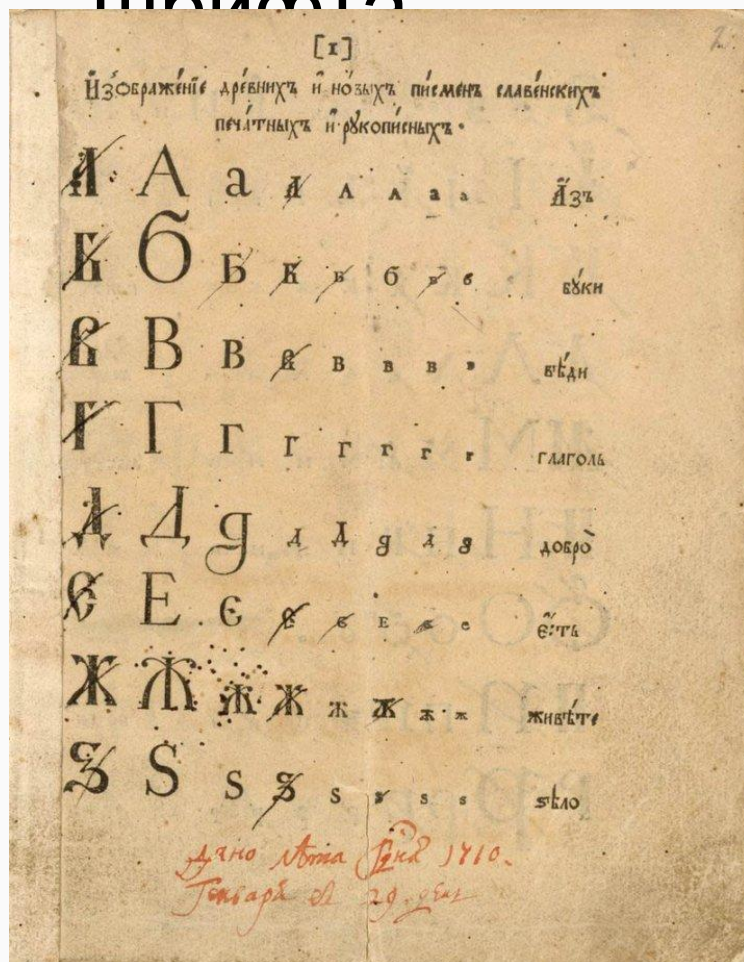 шрифта
[1]
И҆зѡбраже́нїе дре́внихъ и҆ но́выхъ пи́сменъ славе́нскихъ
печа́тныхъ и҆ рꙋкопи́сныхъ.
А А а А А А а а А҆́зъ
Б Б Б Б Б б Б б бꙋ́ки
В В В В В В В В вѣ́ди
Г Г Г Г Г Г Г Г глаго́ль
Д Д д Д Д д Д д добро̀
Є Е Є Є Є Е Є Є є҆́сть
Ж Ж Ж Ж Ж Ж Ж Ж живѣ́те
Ѕ Ѕ Ѕ Ѕ Ѕ Ѕ Ѕ Ѕ ѕѣло̀
Дано лѣта Гдня 1710.
Генваря въ 29. день